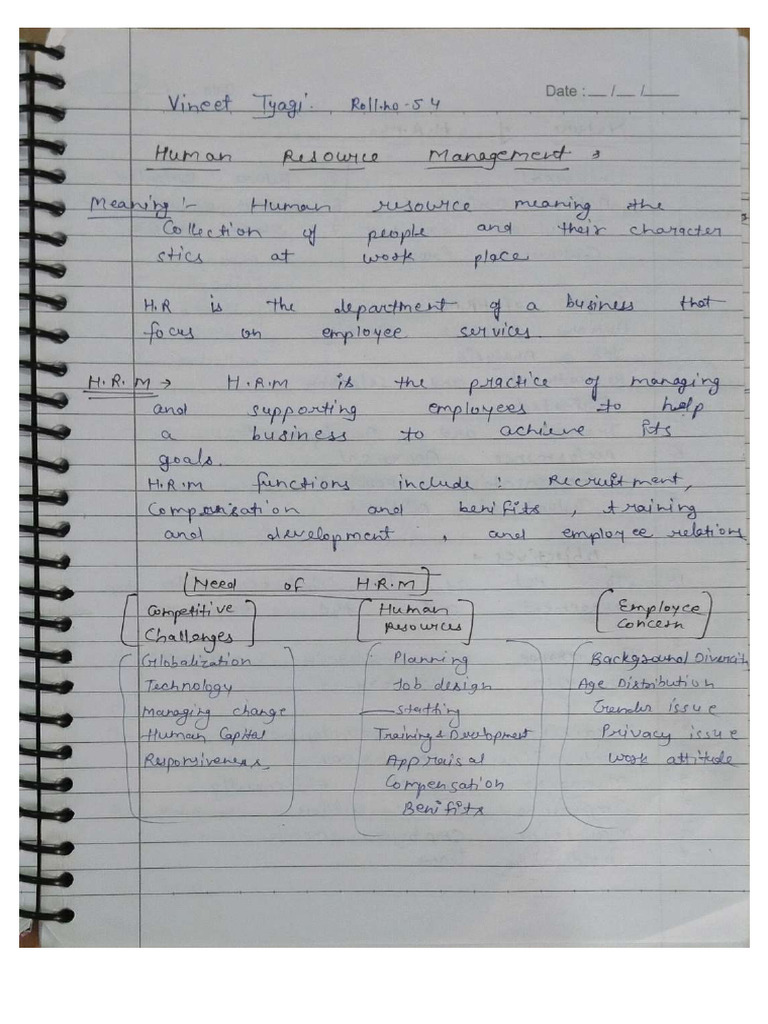 Date : __ /__ /____
Vineet Tyagi. Roll.no-54
Human Resource Management →
Meaning :- Human resource meaning the
Collection of people and their character
stics at work place
H.R is the department of a business that
focus on employee services.
H.R.M → H.R.M is the practice of managing
and supporting employees to help
a business to achieve its
goals.
H.R.M functions include : Recruitment,
Compensation and benifits, training
and development , and employee relations
Need of H.R.M
Competitive Challenges
Globalization
Technology
Managing change
Human Capital
Responsiveness
Human Resources
Planning
Job design
Staffing
Training & Development
Appraisal
Compensation
Benifits
Employee Concern
Background Diversity
Age Distribution
Gender issue
Privacy issue
Work attitude